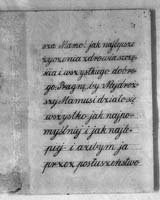 sza Mamo! jak najlepsze
życzenia zdrowia szczę-
ścia i wszystkiego dobre-
go. Pragnę, by Najdroż-
szej Mamusi działo się
wszystko jak najpo-
myślniej i jak najle-
piej - i ażebym ja
przez posłuszeństwo